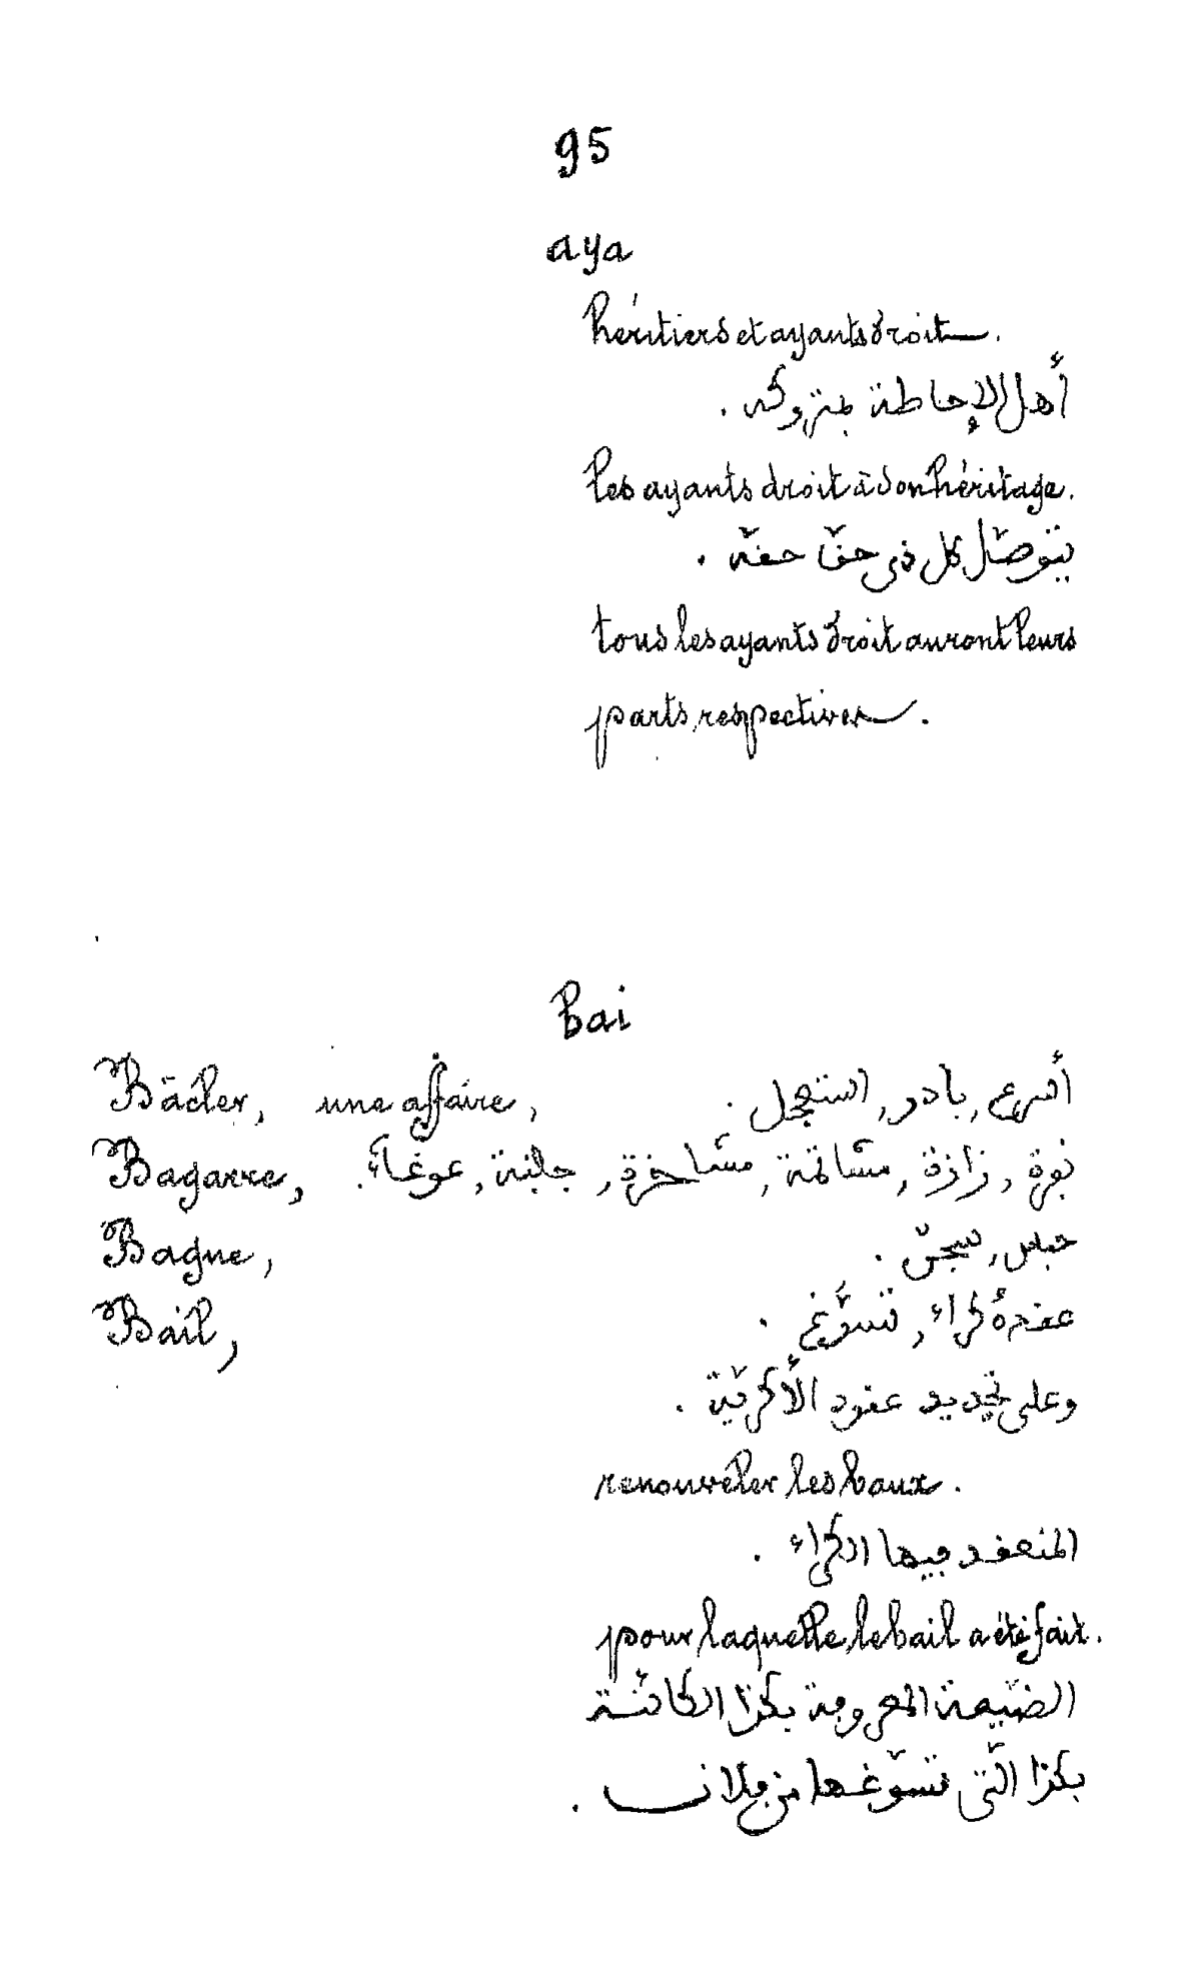 95
aya
héritiers et ayants droit.
أهل الإحاطة بمتروكه.
les ayants droit à son héritage.
يتوصّل كل ذي حقّ حقّه.
tous les ayants droit auront leurs
parts respectives.
Bai
Bâcler, une affaire, أسرع, بادر, استعجل.
Bagarre, نعرة, زازة, مشاتمة, مشاخرة, جلبة, غوغاء.
Bagne, حبس, سجن.
Bail, عقدة كراء, تسوّغ.
وعلى تجديد عقود الأكرية.
renouveler les baux.
المنعقد فيها الكراء.
pour laquelle le bail a été fait.
الضيعة المعروفة بكذا الكائنة
بكذا الّتي تسوّغها من فلان.